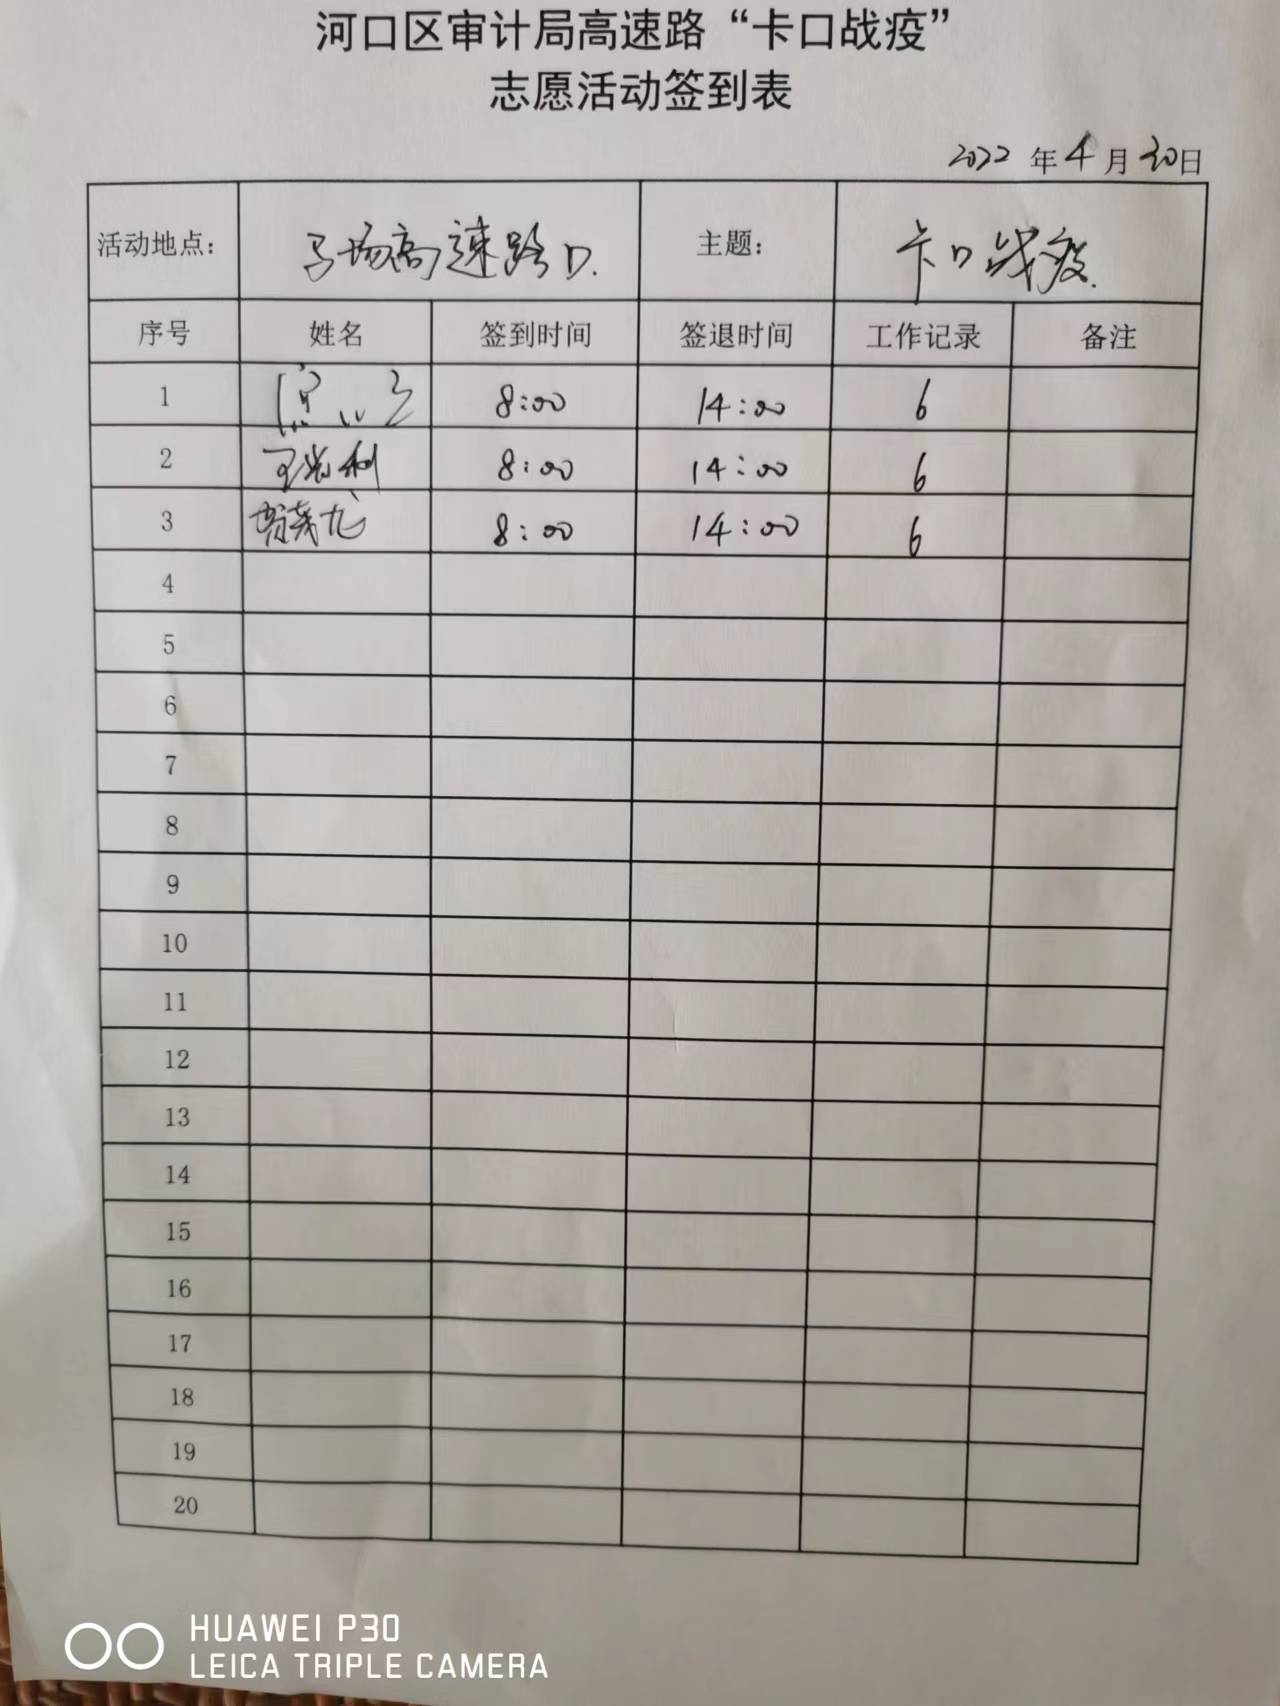 河口区审计局高速路“卡口战疫”
志愿活动签到表
2022 年 4 月 30 日
活动地点： 马场高速路口. 主题： 卡口战疫.
序号 姓名 签到时间 签退时间 工作记录 备注
1 8:00 14:00 6
2 8:00 14:00 6
3 8:00 14:00 6
4
5
6
7
8
9
10
11
12
13
14
15
16
17
18
19
20
HUAWEI P30
LEICA TRIPLE CAMERA